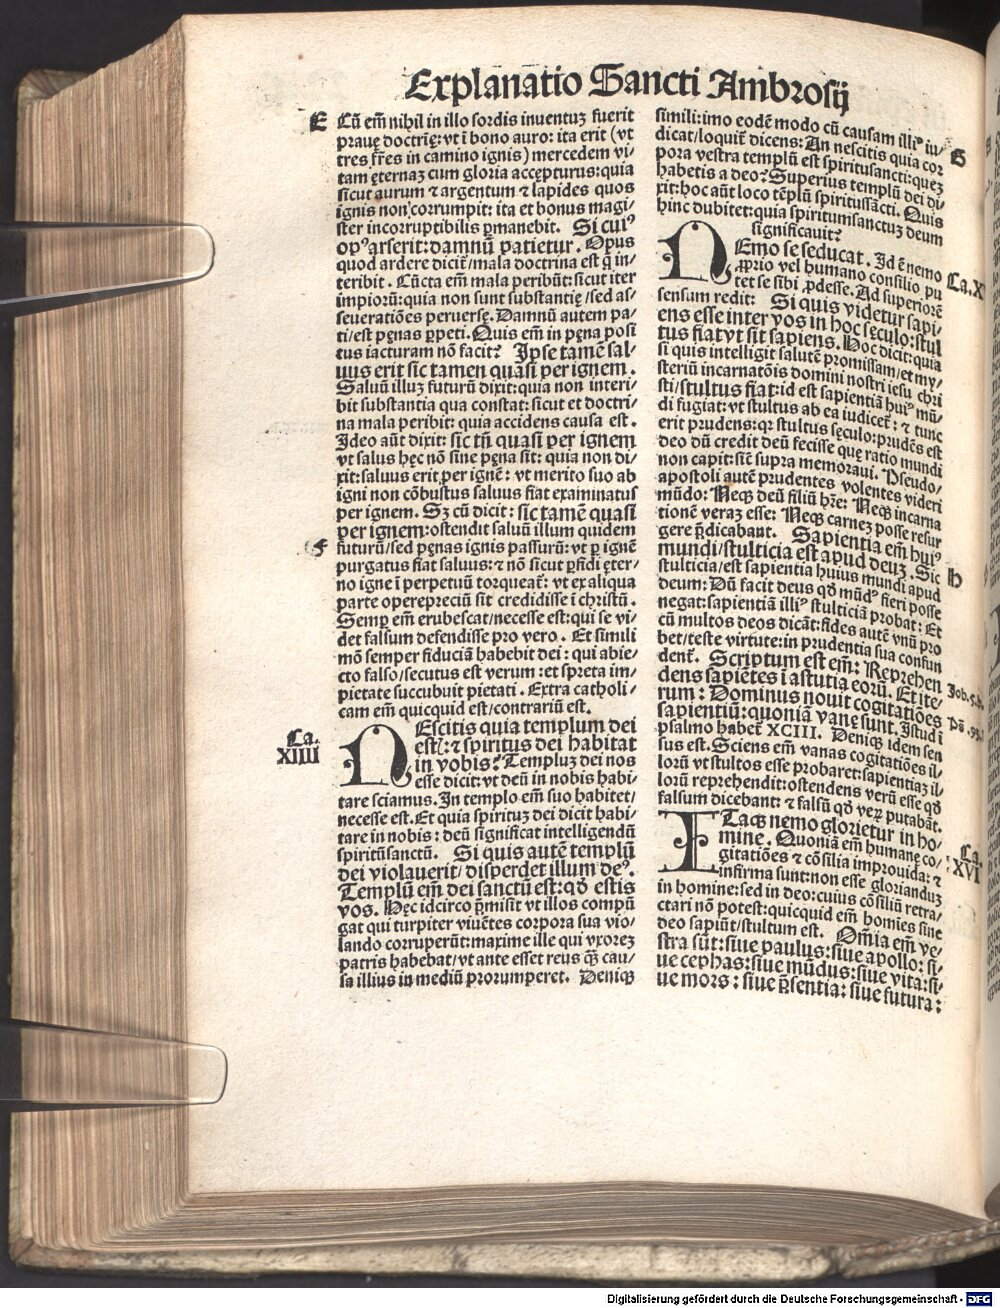 Explanatio Sancti Ambrosij
E
Cū em̄ nihil in illo sordis inventuꝫ fuerit
pravę doctrinę: vt ī bono auro: ita erit (vt
tres fr̄es in camino ignis) mercedem vi⸗
tam ęternaꝫ cum gloria accępturus: quia
sicut aurum ⁊ argentum ⁊ lapides quos
ignis non corrumpit: ita et bonus magi⸗
ster incorruptibilis ꝑmanebit. Si cuiꝰ
opꝰ arserit: damnū patietur. Opus
quod ardere dicit̄/mala doctrina est q̄ in⸗
teribit. Cūcta em̄ mala peribūt: sicut iter
impiorū: quia non sunt substantię/sed as⸗
severatiōes perversę. Damnū autem pa⸗
ti/est pęnas ꝑpeti. Quis em̄ in pęna posi
tus iacturam nō facit? Ipse tamē sal⸗
vus erit sic tamen quasi per ignem.
Salvū illuꝫ futurū dixit: quia non interi⸗
bit substantia qua constat: sicut et doctri⸗
na mala peribit: quia accidens causa est.
Ideo aūt dixit: sic tn̄ quasi per ignem
vt salus hęc nō sine pęna sit: quia non di⸗
xit: salvus erit per ignē: vt merito suo ab
igni non cōbustus salvus fiat examinatus
per ignem. Sꝫ cū dicit: sic tamē quasi
per ignem: ostendit salvū illum quidem
F
futurū/sed pęnas ignis passurū: vt ꝑ ignē
purgatus fiat salvus: ⁊ nō sicut ꝑfidi ęter⸗
no igne ī perpetuū torqueat̄: vt ex aliqua
parte operepreciū sit credidisse ī christū.
Semꝑ em̄ erubescat/necesse est: qui se vi⸗
det falsum defendisse pro vero. Et simili
mō semper fiduciā habebit dei: qui abie⸗
cto falso/secutus est verum: et spreta im⸗
pietate succubuit pietati. Extra catholi⸗
cam em̄ quicquid est/contrariū est.
Ca.
XIIII
NEscitis quia templum dei
est̄: ⁊ spiritus dei habitat
in vobis? Templuꝫ dei nos
esse dicit: vt deū in nobis habi⸗
tare sciamus. In templo em̄ suo habitet⸗
necesse est. Et quia spirituꝫ dei dicit habi⸗
tare in nobis: deū significat intelligendū
spiritūsanctū. Si quis autē templū
dei violaverit/disperdet illum deꝰ.
Templū em̄ dei sanctū est: qd̄ estis
vos. Hęc idcirco p̄misit vt illos compū
gat qui turpiter vivētes corpora sua vio⸗
lando corruperūt: maxime ille qui vxoreꝫ
patris habebat/vt ante esset reus q̄ꝫ cau⸗
sa illius in mediū prorumperet. Deniqꝫ
simili: imo eodē modo cū causam illiꝰ iu⸗
dicat/loquit̄ dicens: An nescitis quia cor
G
pora vestra templū est spiritusancti: queꝫ
habetis a deo? Superius templū dei di
xit: hoc aūt loco tēplū spiritussācti. Quis
hinc dubitet: quia spiritumsanctuꝫ deum
significavit?
Ca. XV
NEmo se seducat. Id ē nemo
ꝓprio vel humano consilio pu
tet se sibi ꝓdesse. Ad superiorē
sensum redit: Si quis videtur sapi⸗
ens esse inter vos in hoc sęculo: stul
tus fiat vt sit sapiens. Hoc dicit: quia
si quis intelligit salutē promissam/et my⸗
steriū incarnatōis domini nostri iesu chri
sti/stultus fiat: id est sapientiā huiꝰ mū⸗
di fugiat: vt stultus ab ea iudicet̄: ⁊ tunc
erit prudens: qr stultus sęculo: prudēs est
deo dū credit deū fecisse quę ratio mundi
non capit: sic̄ supra memoravi. Pseudo⸗
apostoli autē prudentes volentes videri
mūdo: Neqꝫ deū filiū hr̄e: Neqꝫ incarna
tionē veraꝫ esse: Neqꝫ carneꝫ posse resur
gere p̄dicabant. Sapientia em̄ huiꝰ
mundi/stulticia est apud deuꝫ. Sic
H
stulticia/est sapientia huius mundi apud
deum: Dū facit deus qd̄ mūdꝰ fieri posse
negat: sapientiā illiꝰ stulticiā probat: Et
cū multos deos dicāt: fides autē vnū pro
bet/teste virtute: in prudentia sua confun
dent̄. Scriptum est em̄: Reprehen
dens sapiētes ī astutia eorū. Et ite⸗
Job. 5. b.
rum: Dominus novit cogitatiōes
sapientiū: quoniā vanę sunt. Istud ī
Ps̄. 93.
psalmo habet̄ XCIII. Deniqꝫ idem sen
sus est. Sciens em̄ vanas cogitatiōes il⸗
lorū vt stultos esse probaret: sapientiaꝫ il⸗
lorū reprehendit: ostendens verū esse qd̄
falsum dicebant: ⁊ falsū qd̄ veꝝ putabāt.
Ca.
XVI
ITaqꝫ nemo glorietur in ho⸗
mine. Quoniā em̄ humanę co⸗
gitatiōes ⁊ cōsilia improvida: ⁊
infirma sunt: non esse gloriandum
in homine: sed in deo: cuius cōsiliū retra⸗
ctari nō potest: quicquid em̄ homīes sine
deo sapiūt/stultum est. Om̄ia em̄ ve⸗
stra sūt: sive paulus: sive apollo: si⸗
ve cephas: sive mūdus: sive vita: si⸗
ve mors: sive p̄sentia: sive futura:
Digitalisierung gefördert durch die Deutsche Forschungsgemeinschaft - DFG